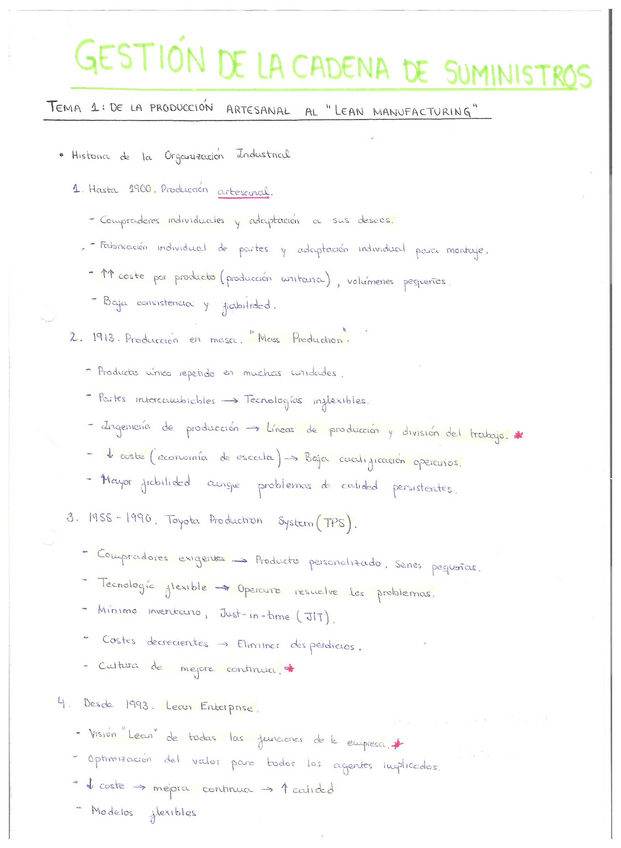 GESTIÓN DE LA CADENA DE SUMINISTROS
TEMA 1: DE LA PRODUCCIÓN ARTESANAL AL "LEAN MANUFACTURING"
• Historia de la Organización Industrial
1. Hasta 1900. Producción artesanal.
- Compradores individuales y adaptación a sus deseos.
- Fabricación individual de partes y adaptación individual para montaje.
- ↑↑ coste por producto (producción unitaria), volúmenes pequeños.
- Baja consistencia y fiabilidad.
2. 1913. Producción en masa. "Mass Production".
- Producto único repetido en muchas unidades.
- Partes intercambiables → Tecnologías inflexibles.
- Ingeniería de producción → Líneas de producción y división del trabajo. *
- ↓ coste (economía de escala) → Baja cualificación operarios.
- Mayor fiabilidad aunque problemas de calidad persistentes.
3. 1955 - 1990. Toyota Production System (TPS).
- Compradores exigentes → Producto personalizado. Series pequeñas.
- Tecnología flexible → Operario resuelve los problemas.
- Mínimo inventario, Just-in-time (JIT).
- Costes decrecientes → Eliminar desperdicios.
- Cultura de mejora continua. *
4. Desde 1993. Lean Enterprise.
- Visión "Lean" de todas las funciones de la empresa. *
- Optimización del valor para todos los agentes implicados.
- ↓ coste → mejora continua → ↑ calidad
- Modelos flexibles